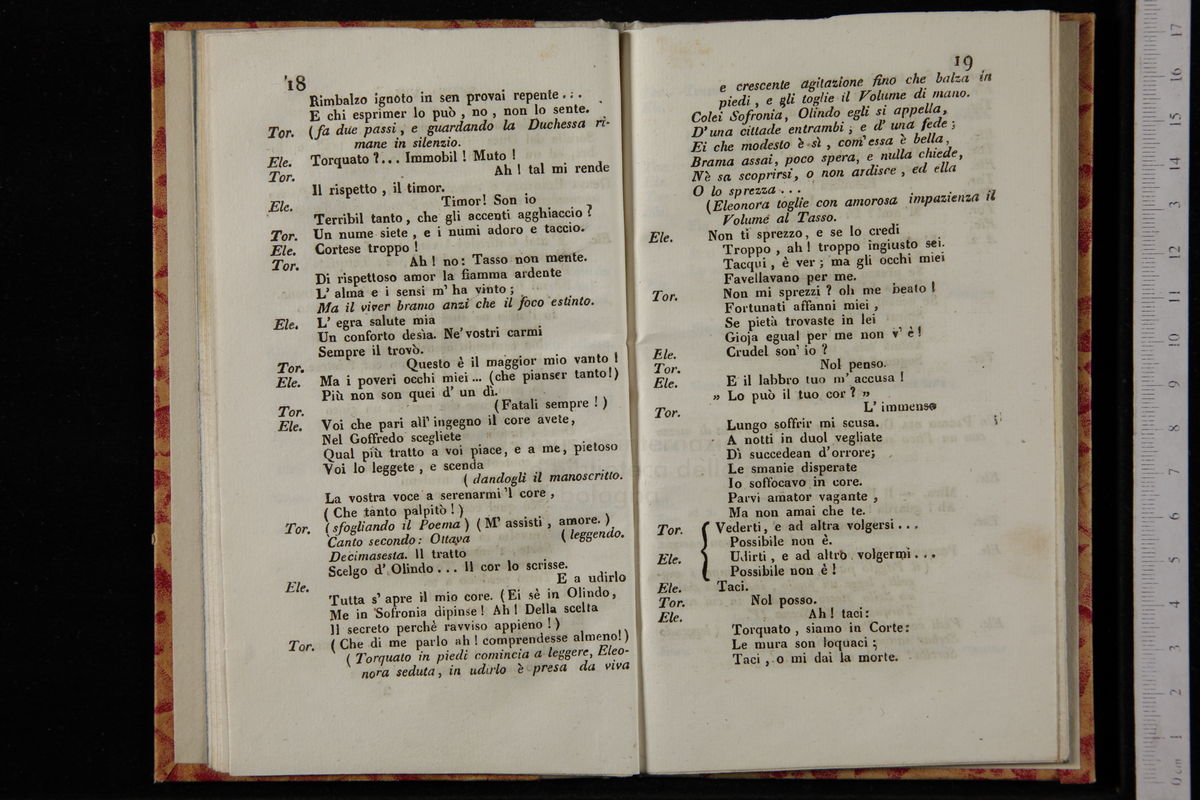 18
Rimbalzo ignoto in sen provai repente . : .
E chi esprimer lo può , no , non lo sente.
Tor. (fa due passi , e guardando la Duchessa ri-
mane in silenzio.
Ele. Torquato ?... Immobil ! Muto !
Tor. Ah ! tal mi rende
Il rispetto , il timor.
Ele. Timor! Son io
Terribil tanto , che gli accenti agghiaccio ?
Tor. Un nume siete , e i numi adoro e taccio.
Ele. Cortese troppo !
Tor. Ah ! no: Tasso non mente.
Di rispettoso amor la fiamma ardente
L' alma e i sensi m' ha vinto ;
Ma il viver bramo anzi che il foco estinto.
Ele. L' egra salute mia
Un conforto desìa. Ne' vostri carmi
Sempre il trovò.
Tor. Questo è il maggior mio vanto !
Ele. Ma i poveri occhi miei ... (che pianser tanto!)
Più non son quei d' un dì.
Tor. (Fatali sempre ! )
Ele. Voi che pari all' ingegno il core avete,
Nel Goffredo scegliete
Qual più tratto a voi piace, e a me, pietoso
Voi lo leggete , e scenda
( dandogli il manoscritto.
La vostra voce a serenarmi 'l core ,
( Che tanto palpitò ! )
Tor. (sfogliando il Poema ) ( M' assisti , amore. )
Canto secondo: Ottava ( leggendo.
Decimasesta. Il tratto
Scelgo d' Olindo . . . Il cor lo scrisse.
Ele. E a udirlo
Tutta s' apre il mio core. (Ei sè in Olindo,
Me in Sofronia dipinse ! Ah ! Della scelta
Il secreto perchè ravviso appieno ! )
Tor. ( Che di me parlo ah ! comprendesse almeno!)
( Torquato in piedi comincia a leggere, Eleo-
nora seduta, in udirlo è presa da viva
19
e crescente agitazione fino che balza in
piedi , e gli toglie il Volume di mano.
Colei Sofronia, Olindo egli si appella,
D' una cittade entrambi ; e d' una fede ;
Ei che modesto è sì , com' essa è bella,
Brama assai, poco spera, e nulla chiede,
Nè sa scoprirsi, o non ardisce , ed ella
O lo sprezza . . .
(Eleonora toglie con amorosa impazienza il
Volume al Tasso.
Ele. Non ti sprezzo, e se lo credi
Troppo , ah ! troppo ingiusto sei.
Tacqui , è ver ; ma gli occhi miei
Favellavano per me.
Tor. Non mi sprezzi ? oh me beato !
Fortunati affanni miei ,
Se pietà trovaste in lei
Gioja egual per me non v' è !
Ele. Crudel son' io ?
Tor. Nol penso.
Ele. E il labbro tuo m' accusa !
„ Lo può il tuo cor ? „
Tor. L' immenso
Lungo soffrir mi scusa.
A notti in duol vegliate
Dì succedean d' orrore;
Le smanie disperate
Io soffocavo in core.
Parvi amator vagante ,
Ma non amai che te.
Tor. Vederti, e ad altra volgersi . . .
Possibile non è.
Ele. Udirti , e ad altrò volgermi . . .
Possibile non è !
Ele. Taci.
Tor. Nol posso.
Ele. Ah ! taci:
Torquato , siamo in Corte:
Le mura son loquaci ;
Taci , o mi dai la morte.